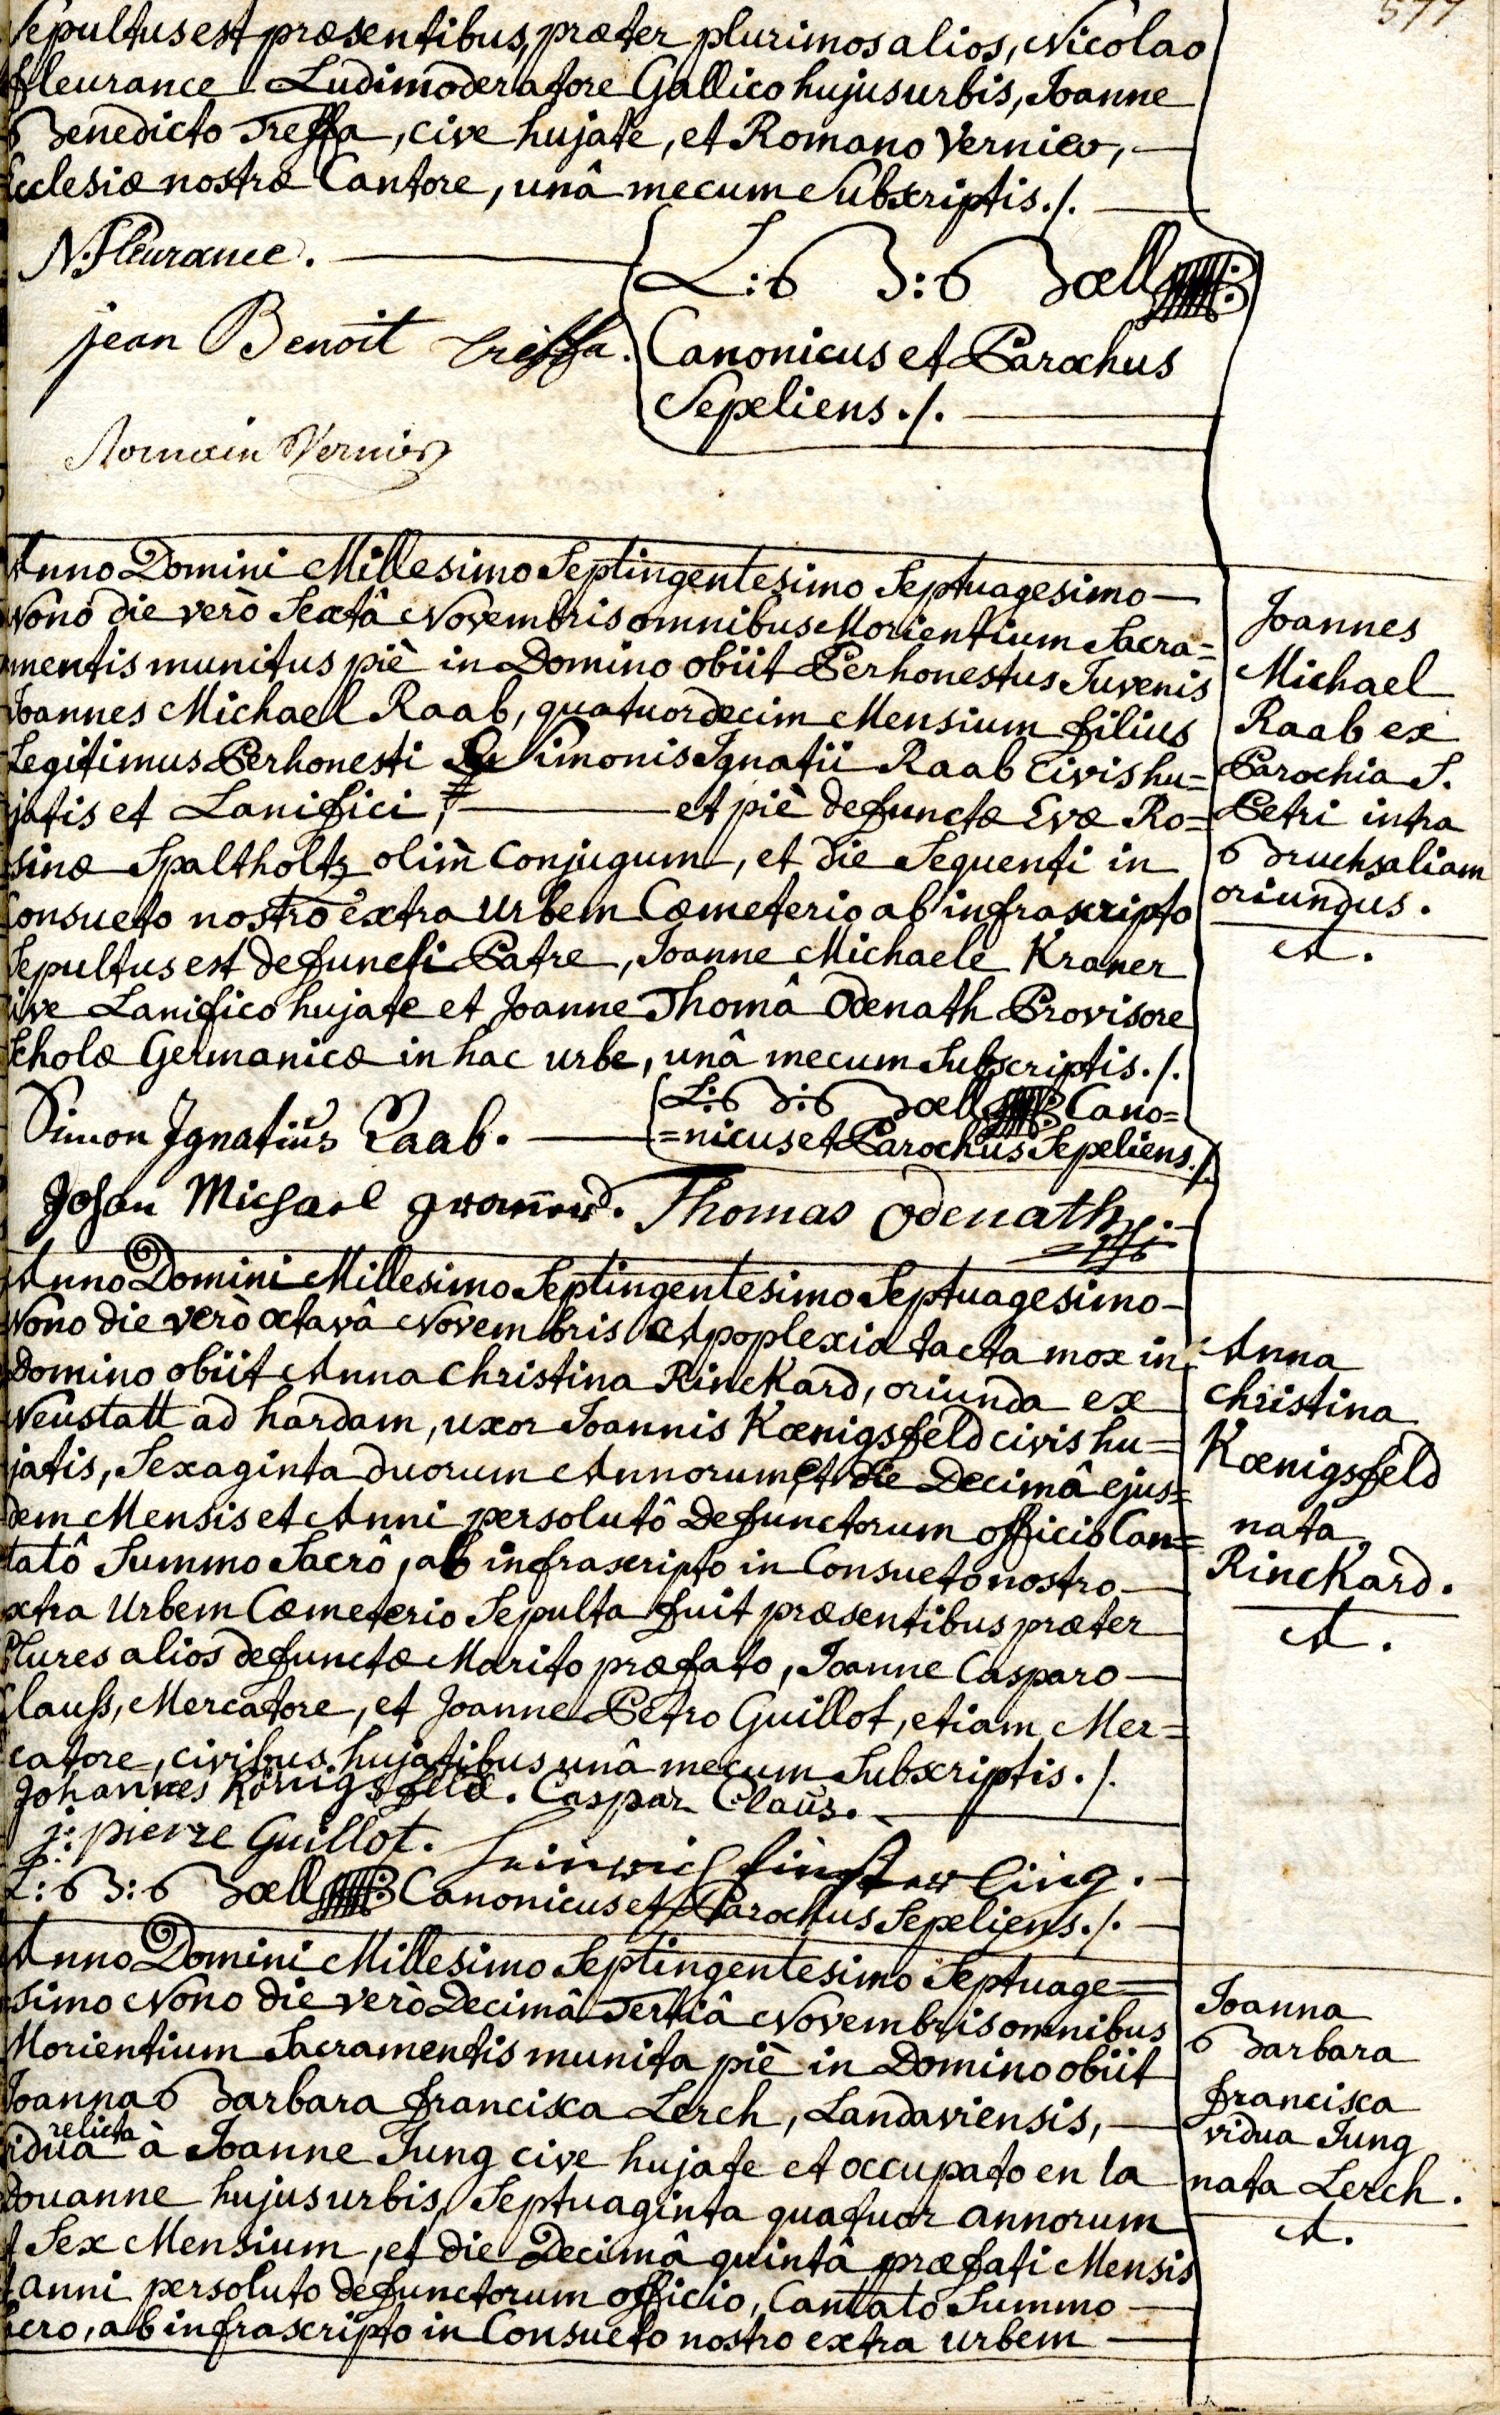 577
Sepultus est præsentibus, præter plurimos alios, Nicolao
fleurance Ludimoderatore Gallico hujus urbis, Joanne
Benedicto Treffa, cive hujate, et Romano Vernier,
Ecclesiæ nostræ Cantore, unâ mecum Subscriptis./.
N. Fleurance.
L: B: Bœll
jean Benoit treffa.
Canonicus et Parochus
Sepeliens./.
Romain Vernier
Anno Domini Millesimo Septingentesimo Septuagesimo
Nono die verò Sextâ Novembris omnibus Morientium Sacra=
mentis munitus piè in Domino obiit Perhonestus Juvenis
Joannes Michael Raab, quatuordecim Mensium filius
Legitimus Perhonesti Simonis Ignatii Raab Civis hu=
jatis et Lanifici, et piè defunctæ Evæ Ro=
sinæ Spaltholtz olim Conjugum, et die Sequenti in
Consueto nostro extra Urbem Cæmeterio ab infrascripto
Sepultus est defuncti Patre, Joanne Michaele Kraner
cive Lanifico hujate et Joanne Thomâ Odenath Provisore
Scholæ Germanicæ in hac urbe, unâ mecum Subscriptis./.
L: B: Bœll Cano=
Simon Ignatius Raab.
=nicus et Parochus Sepeliens./.
Johan Michael
Thomas Odenath
Joannes
Michael
Raab ex
Parochia S.
Petri intra
Bruchsaliam
oriundus.
A.
Anno Domini Millesimo Septingentesimo Septuagesimo
Nono die verò octavâ Novembris Apoplexia tacta mox in
Domino obiit Anna Christina Rinckard, oriunda ex
Neustatt ad hardam, uxor Joannis Kœnigsfeld civis hu=
jatis, Sexaginta duorum Annorum, et die Decimâ ejus=
dem Mensis et Anni persolutô Defunctorum officio Can=
tatô Summo Sacrô, ab infrascripto in Consueto nostro
extra Urbem Cæmeterio Sepulta fuit præsentibus præter
Plures alios defunctæ Marito præfato, Joanne Casparo
Clauss, Mercatore, et Joanne Petro Guillot, etiam Mer=
catore, civibus hujatibus unâ mecum Subscriptis./.
Johannes Königsfeld. Caspar Claus.
j: pierre Guillot.
L: B: Bœll Canonicus et Parochus Sepeliens./.
Anna
Christina
Kœnigsfeld
nata
Rinckard.
A.
Anno Domini Millesimo Septingentesimo Septuage=
simo Nono die verò Decimâ Tertiâ Novembris omnibus
Morientium Sacramentis munita piè in Domino obiit
Joanna Barbara francisca Lerch, Landaviensis,
vidua relicta à Joanne Jung cive hujate et occupato en la
douanne hujus urbis, Septuaginta quatuor annorum
et Sex Mensium, et die Decimâ quintâ præfati Mensis
et anni persoluto defunctorum officio, Cantato Summo
Sacro, ab infrascripto in Consueto nostro extra urbem
Joanna
Barbara
francisca
vidua Jung
nata Lerch.
A.